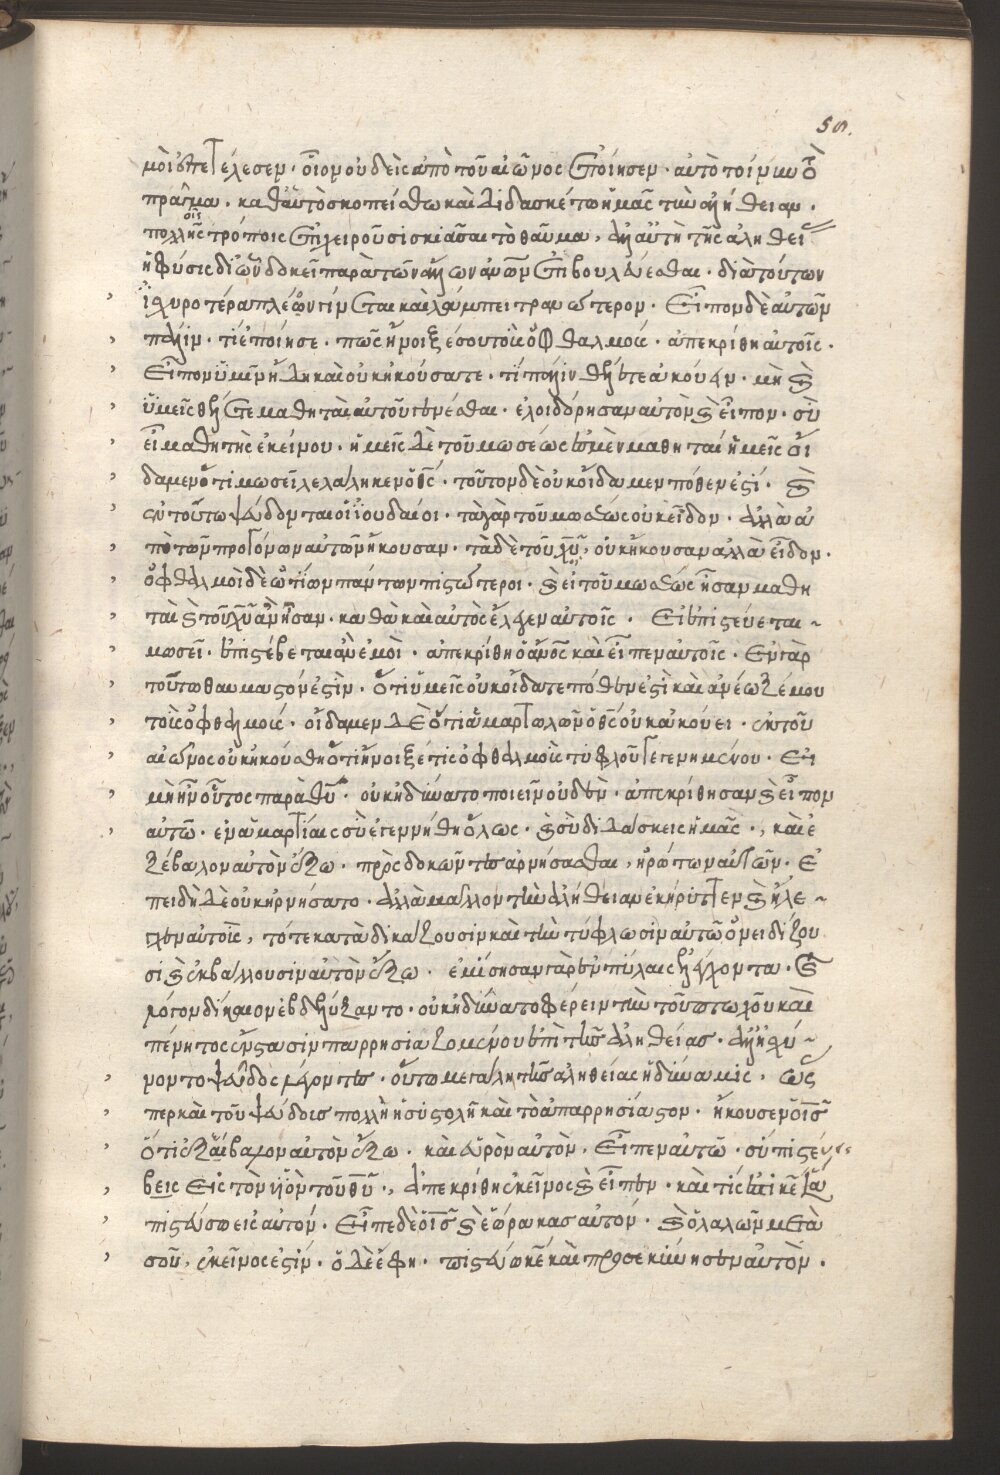 58.
μὸι ἐπετέλεσεν· οἷον οὐδεὶς ἀπὸ τοῦ αἰῶνος ἐποίησεν· αὐτὸ τοίνυν τὸ
πρᾶγμα, καθ' αὑτὸ σκοπείσθω καὶ διδασκέτω ἡμᾶς τὴν ἀλήθειαν.
πολλοῖς τρόποις ἐπιχειροῦσι σκιᾶσαι τὸ θαῦμα, ἀλλ' αὕτη τῆς ἀληθεί
ἡ φύσις δι' ὧν δοκεῖ παρὰ τῶν ἄλλων ἀνων ἐπιβουλεύεσθαι· διὰ τούτων
ἰσχυροτέρα πλέον γίνεται καὶ λάμπει τρανώτερον. Εἶπον δὲ αὐτῶ
πάλιν· τί ἐποίησε· πῶς ἤνοιξέ σου τοὺς ὀφθαλμούς· ἀπεκρίθη αὐτοῖς·
Εἶπον ὑμῖν ἤδη καὶ οὐκ ἠκούσατε· τί πάλιν θέλετε ἀκούειν· μὴ καὶ
ὑμεῖς θέλετε μαθηταὶ αὐτοῦ γενέσθαι· ἐλοιδόρησαν αὐτὸν καὶ εἶπον· σὺ
εἶ μαθητὴς ἐκείνου· ἡμεῖς δὲ τοῦ μωσέως ἐσμὲν μαθηταί ἡμεῖς οἴ
δαμεν ὅτι μωσεῖ λελάληκεν ὁ θς· τοῦτον δὲ οὐκ οἴδαμεν πόθεν ἐστί· καὶ
ἐν τούτω ψεύδονται οἱ ἰουδαῖοι· τὰ γὰρ τοῦ μωσέως οὐκ εἶδον· ἀλλὰ ἀ
πὸ τῶν προγόνων αὐτῶν ἤκουσαν· τὰ δὲ τοῦ χυ, οὐκ ἤκουσαν ἀλλὰ εἶδον·
ὀφθαλμοὶ δὲ ὠτίων πάντων πιστώτεροι· καὶ εἰ τοῦ μωσέως ἦσαν μαθη
ταὶ καὶ τοῦ χυ ἂν ἦσαν· καθὰ καὶ αὐτὸς ἔλεγεν αὐτοῖς· Εἰ ἐπιστεύεται
μωσεῖ· ἐπιστέβεται ἂν ἐμοὶ· ἀπεκρίθη ὁ ἄνος καὶ εἶπεν αὐτοῖς· Εν γὰρ
τοῦτω θαυμαστόν ἐστὶν· ὅτι ὑμεῖς οὐκ οἴδατε πόθεν ἐστὶ καὶ ἀνέωξέ μου
τοὺς ὀφθαλμούς· οἴδαμεν δὲ ὅτι ἁμαρτωλῶν ὁ θς οὐκ ἀκούει· ἐκ τοῦ
αἰῶνος οὐκ ἠκούσθη ὅτι ἤνοιξέ τις ὀφθαλμοὺς τυφλοῦ γεγενημένου· Εἰ
μὴ ἦν οὗτος παρὰ θυ· οὐκ ἠδύνατο ποιεῖν οὐδέν· ἀπεκρίθησαν καὶ εἶπον
αὐτῶ· ἐν ἁμαρτίαις σὺ ἐγεννήθη ὅλως· καὶ σὺ διδάσκεις ἡμᾶς·, καὶ ἐ
ξέβαλον αὐτὸν ἔξω· πρὸς δοκῶντες ἀρνήσασθαι, ἠρώτων αὐτῶν· ἐ
πειδὴ δὲ οὐκ ἠρνήσατο· ἀλλὰ μᾶλλον τὴν ἀλήθειαν ἐκήρυττεν καὶ ἤλε
γχεν αὐτοῖς, τότε καταδικάζουσιν καὶ τὴν τύφλωσιν αὐτῶ ὀνειδίζου
σι καὶ ἐκβάλλουσιν αὐτὸν ἔξω· ἐμίσησαν γὰρ ἐν πύλαις ἐλέγχοντα· καὶ
λόγον δίκαιον ἐβδελύξαντο· οὐκ ἠδύνατο φέρειν τὴν τοῦ πτωχοῦ καὶ
πένητος ἔνστασιν παρρησιαζομένου ἐπὶ τῆς ἀληθείας· ἀλλ' ἠσχύ
νοντο ψεῦδος λέγοντες· οὕτω μεγάλη τῆς ἀληθείας ἡ δύναμις· ὥς
περ καὶ τοῦ ψεύδους πολλὴ ἡ συστολὴ καὶ τὸ ἀπαρρησίαστον· ἤκουσεν ὁ ις
ὅτι ἐξέβαλον αὐτὸν ἔξω· καὶ εὑρὸν αὐτὸν, Εἶπεν αὐτῶ· σύ πιστέυ
βεις Εἰς τὸν υἱὸν τοῦ θυ·, ἀπεκρίθη ἐκεῖνος καὶ εἶπεν· καὶ τίς ἐστι κε ἵνα
πιστεύσω εἰς αὐτόν· Εἶπε δὲ ὁ ις καὶ ἑώρακας αὐτόν· καὶ ὁ λαλῶν μετὰ
σοῦ, ἐκεῖνος ἐστίν· ὁ δὲ ἔφη· πιστεύω κε καὶ προσεκύνησεν αὐτὸν.